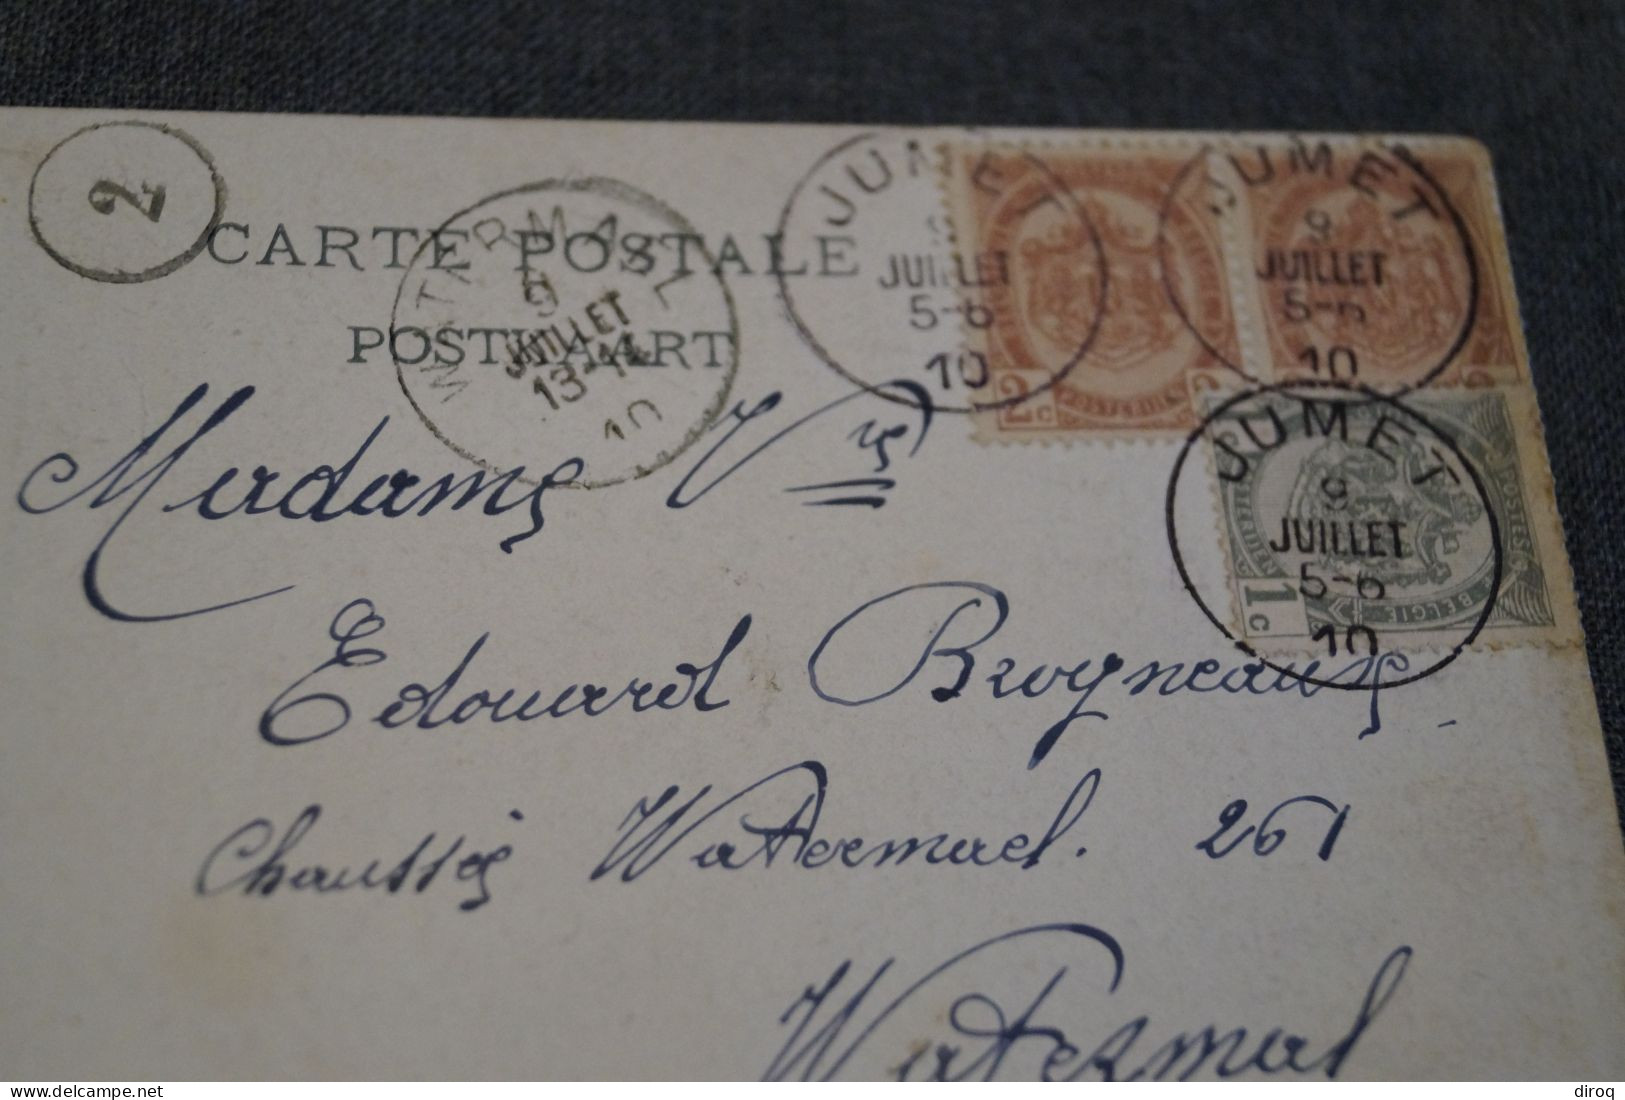 2
CARTE POSTALE
POSTKAART
WATERMAEL
9
JUILLET
13-14
10
JUMET
9
JUILLET
5-6
10
JUMET
9
JUILLET
5-6
10
2c
2
JUMET
9
JUILLET
5-6
10
1c
BELGIE
POSTES
Madame Vve
Edouard Brogneaux
Chaussée Watermael. 261
Watermal
© delcampe.net
diroq